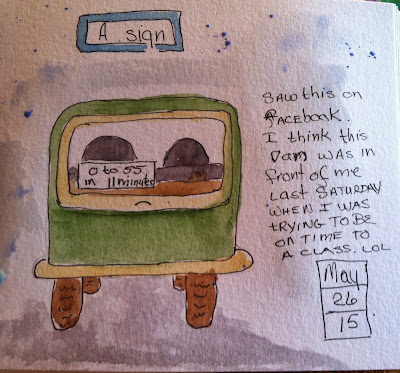 A sign
0 to 55
in 11 minutes
SAW this on
Facebook.
I think this
Dam WAS in
front of me
LAST SATURDAY
WHEN I WAS
TRYING TO BE
ON TIME TO
A CLASS. LOL
May
26
15